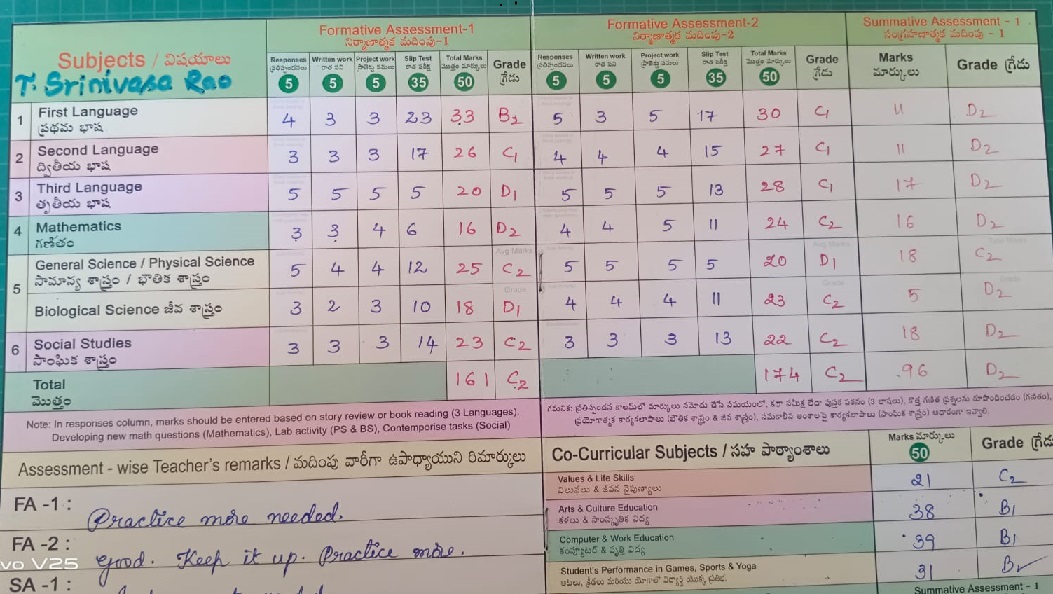 Formative Assessment-1 Formative Assessment-2 Summative Assessment - 1
నిర్మాణాత్మక మదింపు-1 నిర్మాణాత్మక మదింపు-2 సంగ్రహణాత్మక మదింపు - 1
Subjects / విషయాలు Responses Written work Project work Slip Test Total Marks Grade Responses Written work Project work Slip Test Total Marks Grade Marks Grade (గ్రేడు)
గ్రేడు గ్రేడు మార్కులు
T. Srinivasa Rao 5 5 5 35 50 5 5 5 35 50
1 First Language 4 3 3 23 33 B2 5 3 5 17 30 C1 11 D2
ప్రథమ భాష
2 Second Language 3 3 3 17 26 C1 4 4 4 15 27 C1 11 D2
ద్వితీయ భాష
3 Third Language 5 5 5 5 20 D1 5 5 5 13 28 C1 17 D2
తృతీయ భాష
4 Mathematics 3 3 4 6 16 D2 4 4 5 11 24 C2 16 D2
గణితం
5 General Science / Physical Science 5 4 4 12 25 C2 5 5 5 5 20 D1 18 C2
సామాన్య శాస్త్రం / భౌతిక శాస్త్రం
Biological Science జీవ శాస్త్రం 3 2 3 10 18 D1 4 4 4 11 23 C2 5 D2
6 Social Studies 3 3 3 14 23 C2 3 3 3 13 22 C2 18 D2
సాంఘిక శాస్త్రం
Total 161 C2 174 C2 96 D2
మొత్తం
Note: In responses column, marks should be entered based on story review or book reading (3 Languages),
Developing new math questions (Mathematics), Lab activity (PS & BS), Contemporise tasks (Social)
Assessment - wise Teacher's remarks / మదింపు వారీగా ఉపాధ్యాయుని రిమార్కులు
FA -1 : Practice more needed.
FA -2 : Good. Keep it up. Practice more.
SA -1 :
Co-Curricular Subjects / సహ పాఠ్యాంశాలు Marks మార్కులు Grade (గ్రేడు)
50
Values & Life Skills 21 C2
విలువలు & జీవన నైపుణ్యాలు
Arts & Culture Education 38 B1
కళలు & సాంస్కృతిక విద్య
Computer & Work Education 39 B1
కంప్యూటర్ & వృత్తి విద్య
Student's Performance in Games, Sports & Yoga 31 B2
Summative Assessment - 1
vo V25